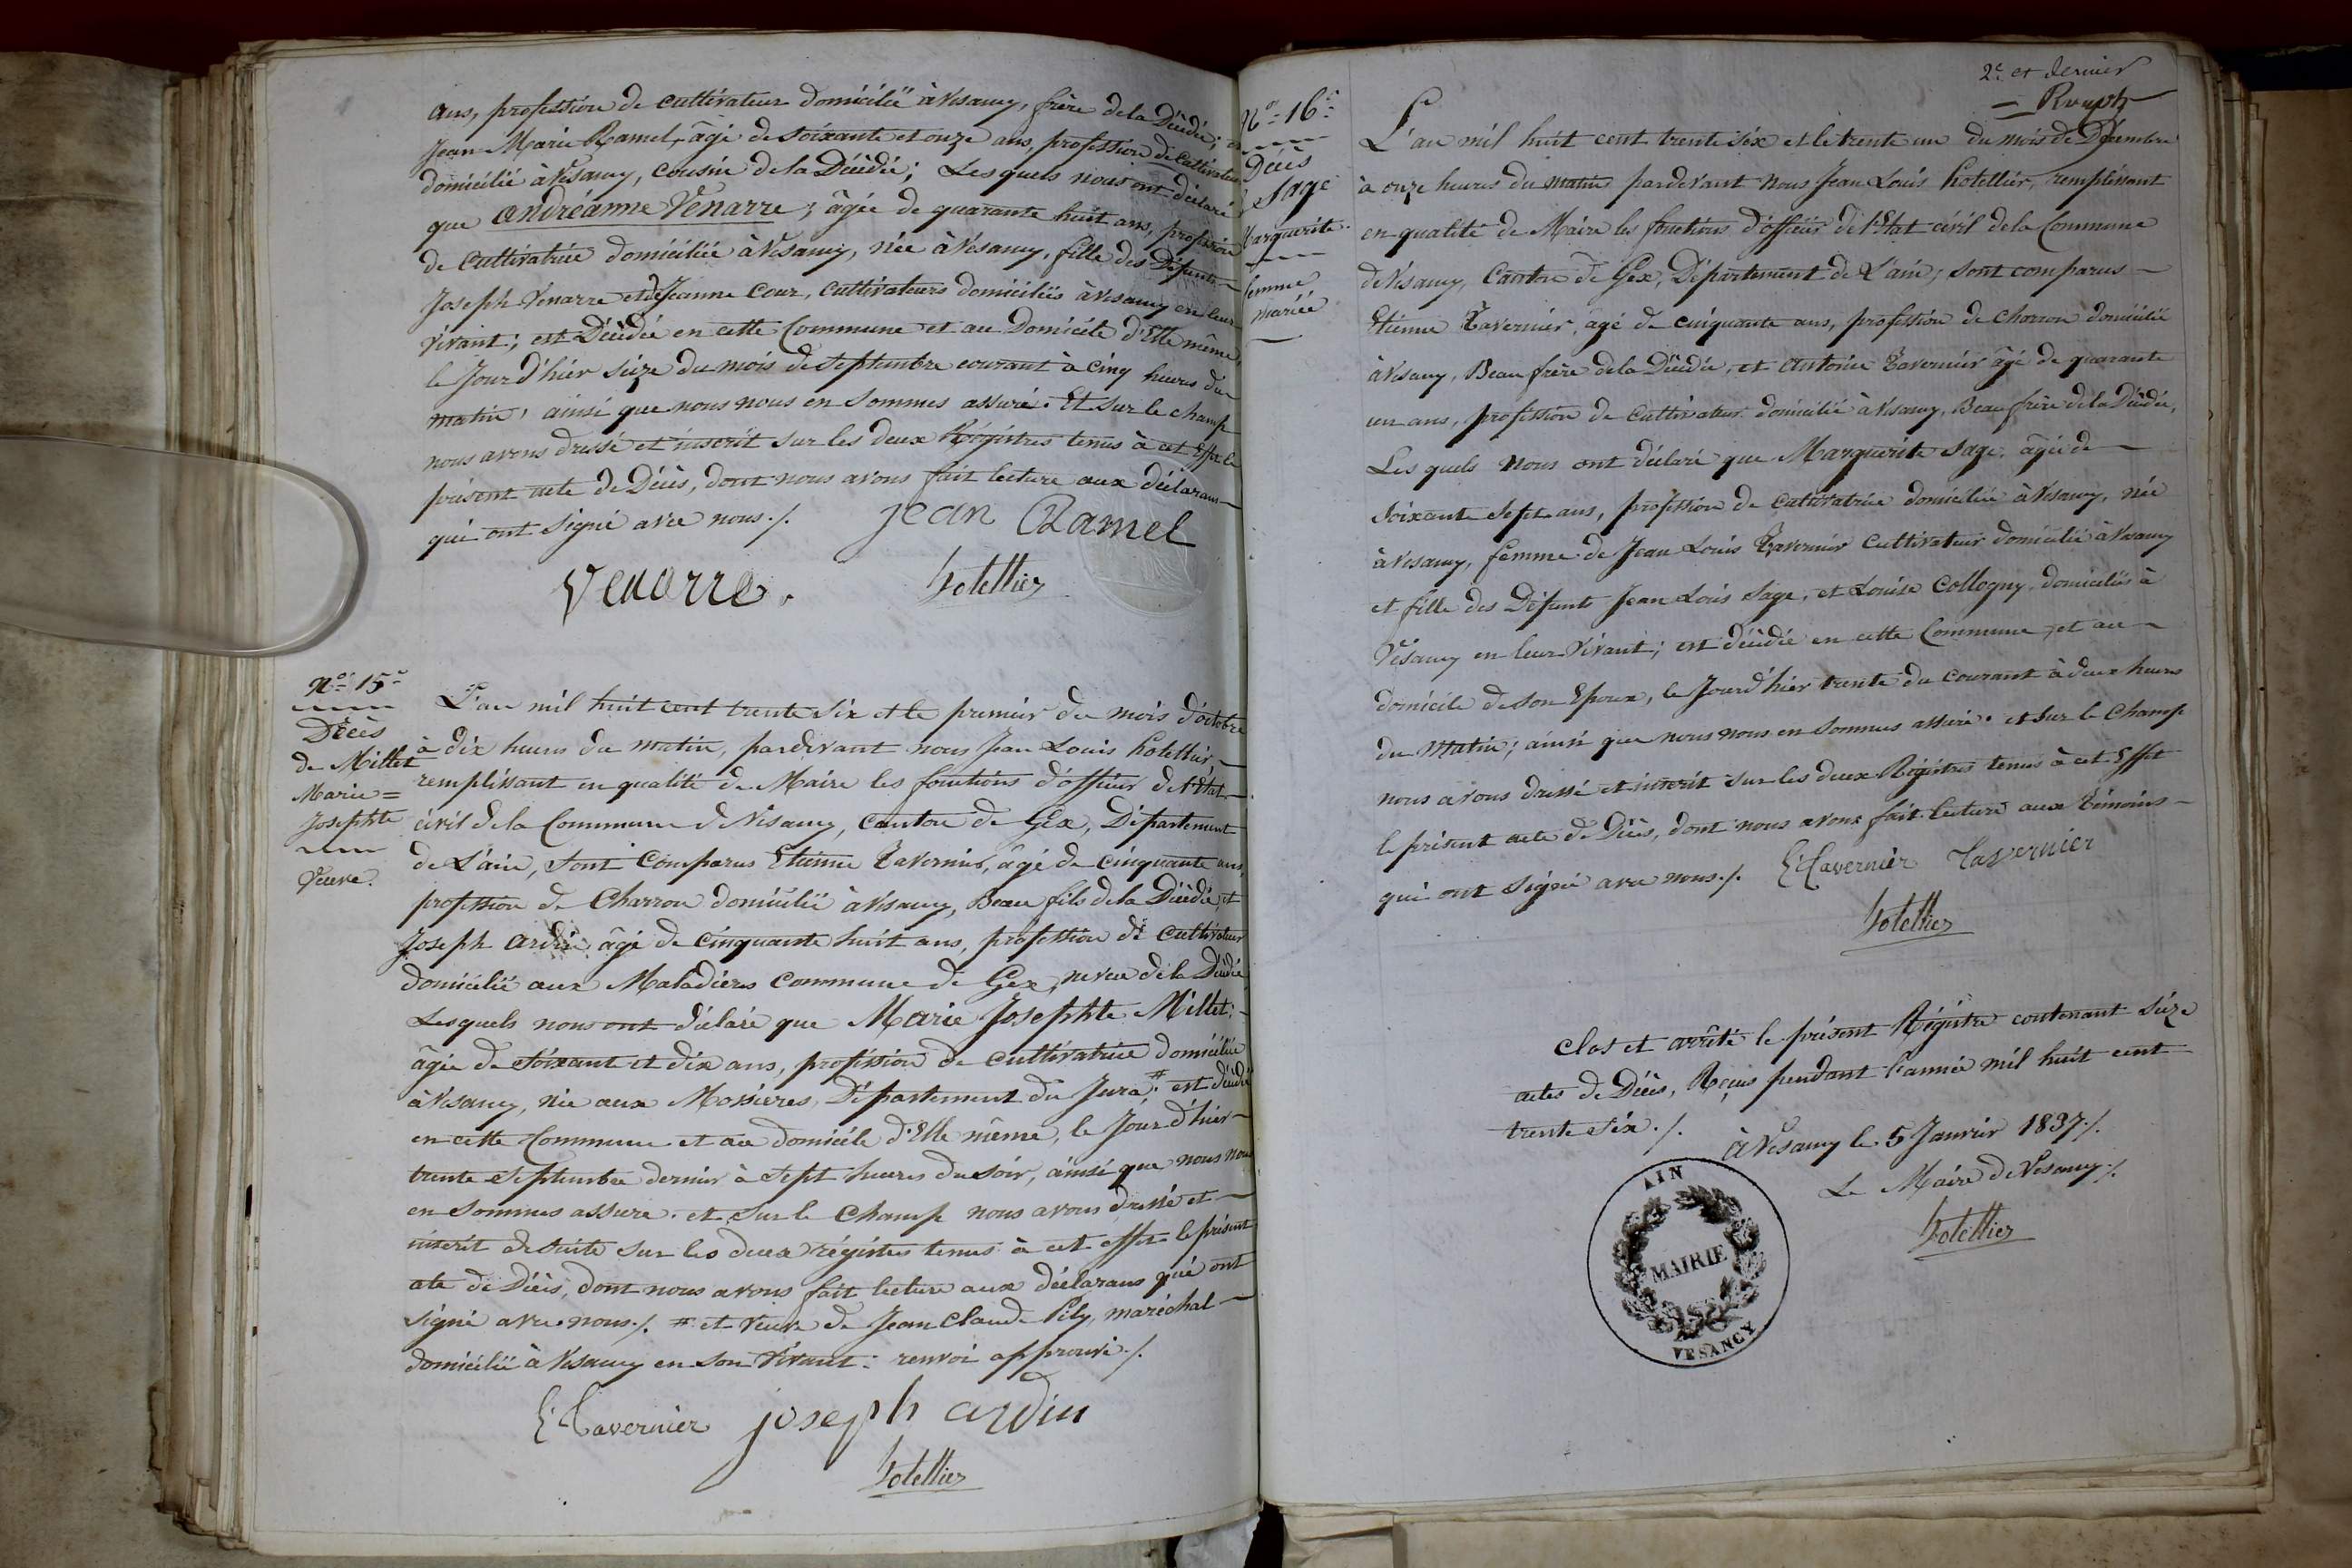 ans, profession de cultivateur domicilié à Vésancy, frère de la Décédée; et
Jean-Marie Ramel, âgé de soixante et onze ans, profession de Cultivateur
domicilié à Vésancy, cousin de la Décédée; Lesquels nous ont déclaré
que andréanne Venarre; âgée de quarante huit ans, profession
de Cultivatrice domiciliée à Vésancy, née à Vésancy, fille des Défunts
Joseph Venarre et de Jeanne Cour, cultivateurs domiciliés à Vésancy en leur
vivant; est Décédée en cette Commune et au Domicile d'Elle même,
le Jour d'hier seize du mois de Septembre courant à cinq heures du
matin, ainsi que nous nous en sommes assuré. Et sur le champ
nous avons dressé et inscrit sur les deux Régistres tenus à cet Effet le
présent acte de Décès, dont nous avons fait lecture aux déclarans
qui ont signé avec nous ./.
jean Ramel
Venarre.
hotellier
No. 15e
Décès
de Millet
Marie=
Josephte
Veuve.
L'an mil huit cent trente six et le premier du mois d'octobre
à dix heures du matin, pardevant nous Jean Louis hotellier,
remplissant en qualité de Maire les fonctions d'officier de l'Etat
civil de la Commune de Vésancy, canton de Gex, Département
de L'ain, sont Comparus Etienne Tavernier, âgé de cinquante ans,
profession de Charron domicilié à Vésancy, Beau fils de la Décédée, et
Joseph ardin, âgé de cinquante huit ans, profession de cultivateur
domicilié aux Maladières commune de Gex, neveu de la Décédée
Lesquels nous ont déclaré que Marie Josephte Millet;
âgée de soixante et dix ans, profession de cultivatrice domiciliée
à Vésancy, née aux Mossières, Département du Jura; # est décédée
en cette Commune et au domicile d'Elle même, le Jour d'hier
trente Septembre dernier à sept heures du soir, ainsi que nous nous
en sommes assuré. et sur le champ nous avons dressé et
inscrit de suite sur les deux régistres tenus à cet effet le présent
acte de Décès, dont nous avons fait lecture aux déclarans qui ont
signé avec nous ./. # et veuve de Jean Claude Pily, maréchal
domicilié à Vésancy en son vivant: renvoi approuvé ./.
E. Tavernier joseph ardin
hotellier
2e et dernier
No. 16e
Décès
Sage
Marguerite.
femme,
mariée
L'an mil huit cent trente six et le trente un du mois de Décembre
à onze heures du matin pardevant nous Jean Louis hotellier, remplissant
en qualité de Maire les fonctions d'officier de l'Etat civil de la Commune
de Vésancy, Canton de Gex, Département de L'ain; sont comparus
Etienne Tavernier, âgé de cinquante ans, profession de charron domicilié
à Vésancy, Beau frère de la Décédée, et Antoine Tavernier âgé de quarante
un ans, profession de Cultivateur domicilié à Vésancy, Beau frère de la Décédée,
Les quels nous ont déclaré que Marguerite Sage, âgée de
soixante sept ans, profession de cultivatrice domiciliée à Vésancy, née
à Vésancy, femme de Jean Louis Tavernier Cultivateur domicilié à Vésancy
et fille des Défunts Jean Louis Sage, et Louise Collogny, domiciliés à
Vésancy en leur Vivant; est décédée en cette Commune, et au
domicile de son Epoux, le Jour d'hier trente du courant à deux heures
du matin; ainsi que nous nous en sommes assuré. et sur le champ
nous avons dressé et inscrit sur les deux Régistres tenus à cet Effet
le présent acte de Décès, dont nous avons fait lecture aux Témoins
qui ont signé avec nous ./. E. Tavernier Tavernier
hotellier
Clos et arrêté le présent Régistre contenant seize
actes de Décès, Reçus pendant l'année mil huit cent
trente six ./.
à Vésancy le 5 Janvier 1837 ./.
Le Maire de Vesancy ./.
hotellier
AIN
MAIRIE
VESANCY